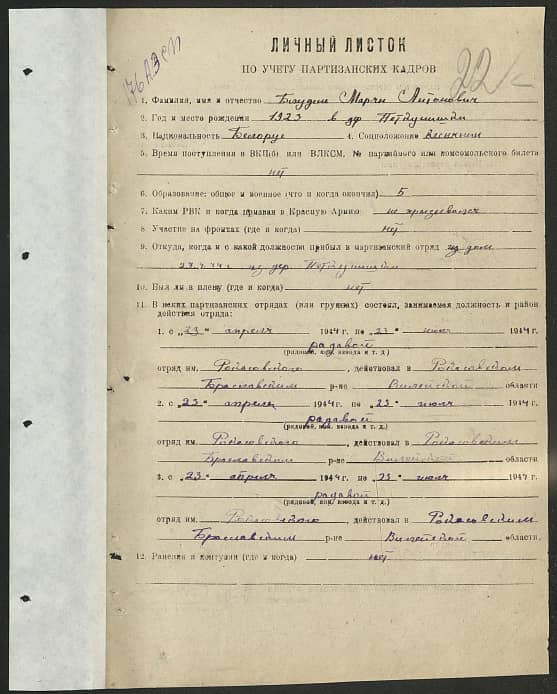 ЛИЧНЫЙ ЛИСТОК
ПО УЧЕТУ ПАРТИЗАНСКИХ КАДРОВ
22
1. Фамилия, имя и отчество Антонович
2. Год и место рождения 1923 в др
3. Национальность Белорус 4. Соцположение
5. Время поступления в ВКП(б) или ВЛКСМ, № партийного или комсомольского билета
нет
6. Образование: общее и военное (что и когда окончил) 5
7. Каким РВК и когда призван в Красную Армию не призывался
8. Участие на фронтах (где и когда) нет
9. Откуда, когда и с какой должности прибыл в партизанский отряд из дом
из дер
10. Был ли в плену (где и когда) нет
11. В каких партизанских отрядах (или группах) состоял, занимаемая должность и район
действия отряда:
1. с „23“ апреля 1944 г. по „23“ июля 1944 г.
радавой
(рядовой, ком. взвода и т. д.)
отряд им. , действовал в
Браславским р-не Вилейской области
2. с „23“ апреля 1944 г. по „23“ июля 1944 г.
радавой
(рядовой, ком. взвода и т. д.)
отряд им. , действовал в
Браславским р-не Вилейской области
3. с „23“ апреля 1944 г. по „23“ июля 1944 г.
радавой
(рядовой, ком. взвода и т. д.)
отряд им. , действовал в
Браславским р-не Вилейской области.
12. Ранения и контузии (где и когда) нет